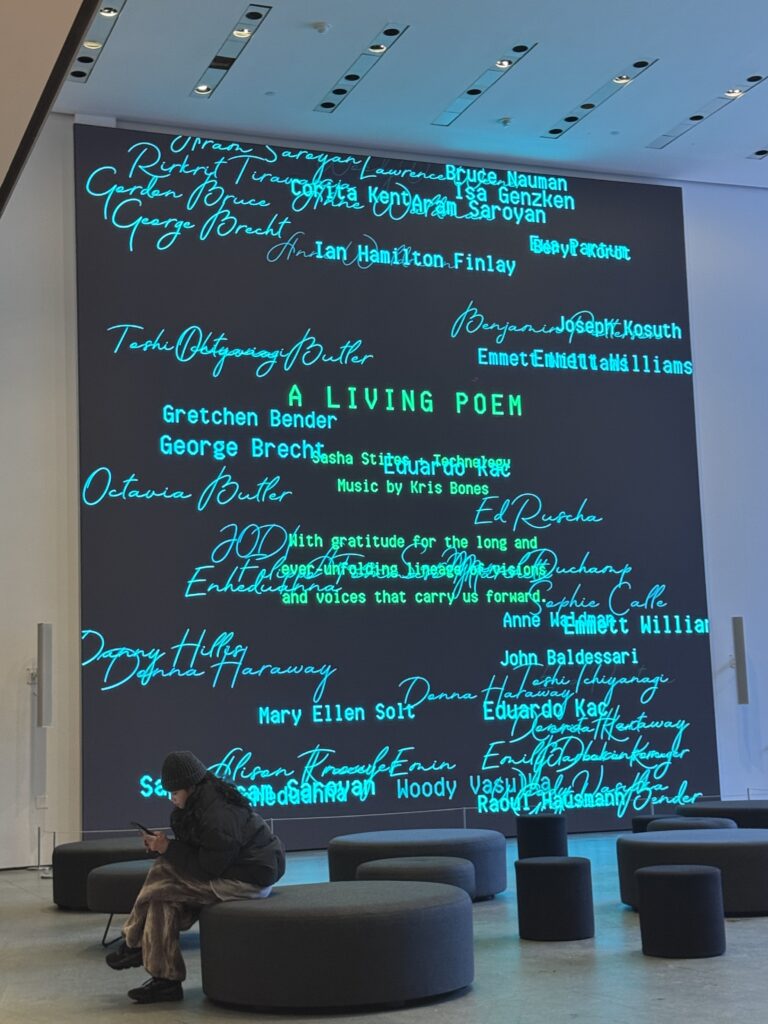 Aram Saroyan Lawrence
Rirkrit
Bruce Nauman
Gordon Bruce
Corita Kent
Isa Genzken
Aram Saroyan
George Brecht
Ian Hamilton Finlay
Beryl Korot
Benjamin
Joseph Kosuth
Toshi
Octavia Butler
Emmett Williams
Emmett Williams
A LIVING POEM
Gretchen Bender
George Brecht
Sasha Stiles + Technology
Eduardo Kac
Music by Kris Bones
Octavia Butler
Ed Ruscha
JODI
With gratitude for the long and
ever-unfolding lineage of visions
Duchamp
Enheduanna
and voices that carry us forward.
Sophie Calle
Anne Waldman
Emmett William
Danny Hillis
Donna Haraway
John Baldessari
Toshi Ichiyanagi
Donna Haraway
Mary Ellen Solt
Eduardo Kac
Alison
Emin
Aram Saroyan
Woody Vasulka
Enheduanna
Raoul Hausmann
Bender